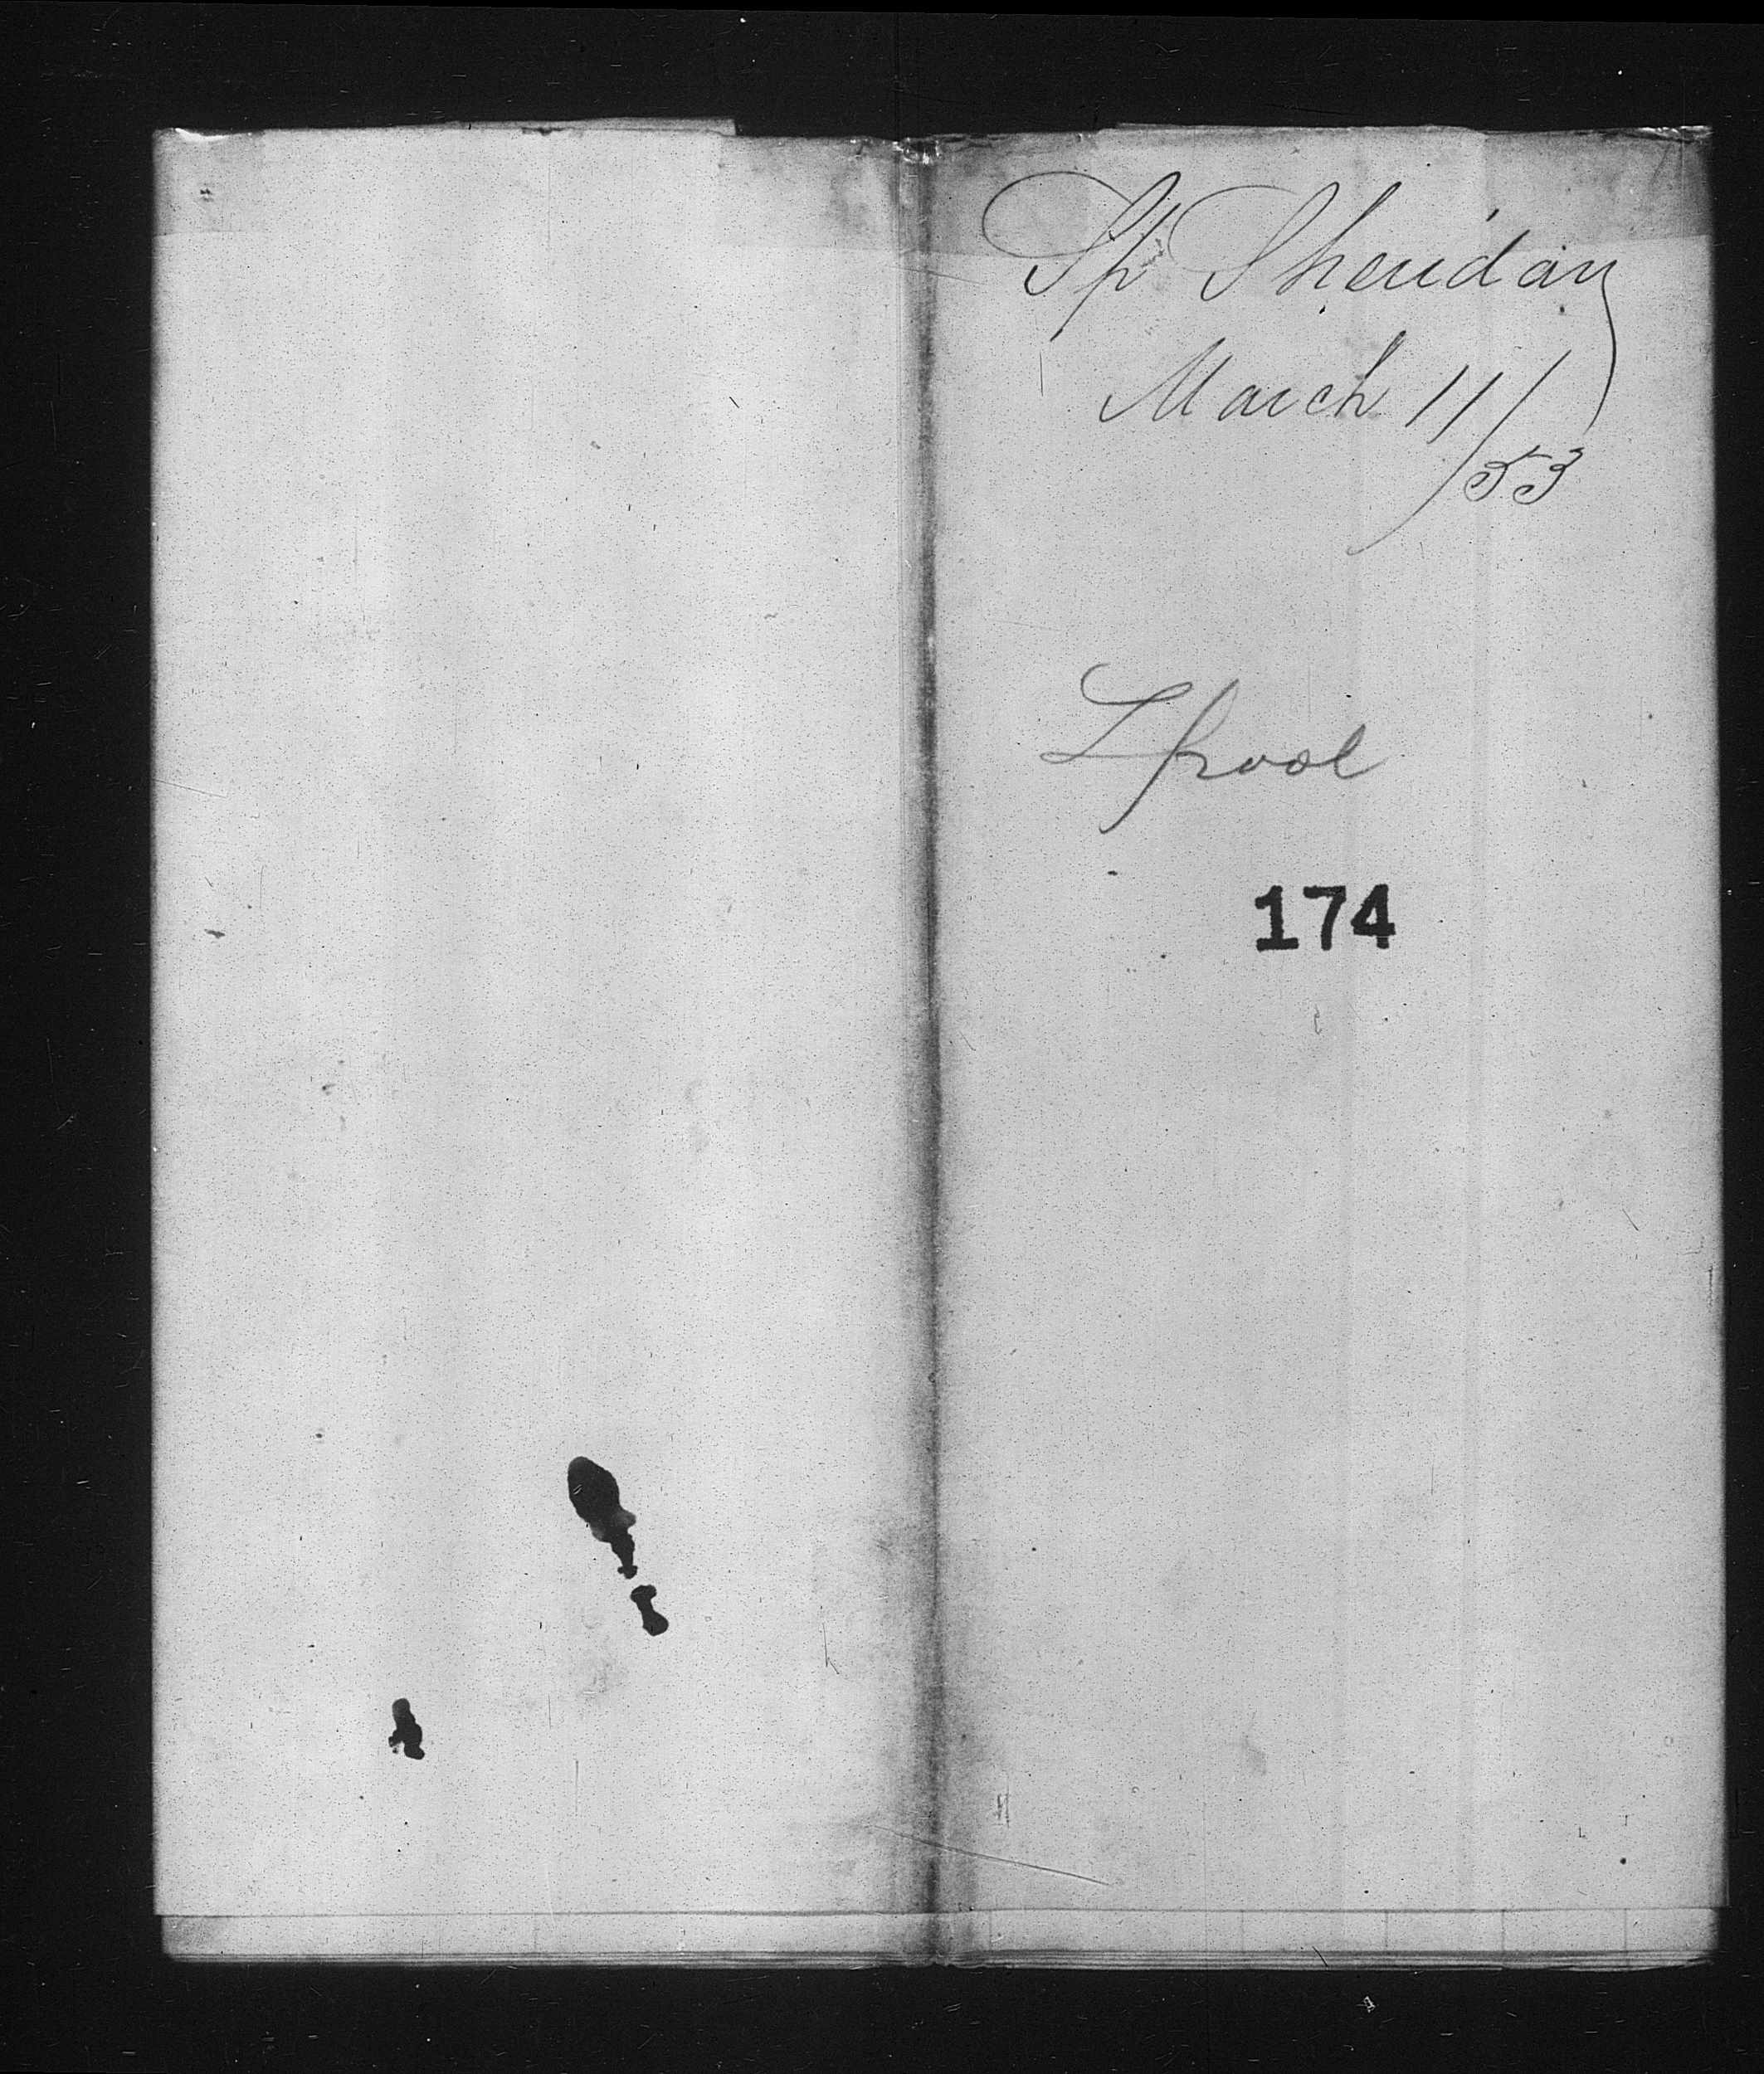 Sp Sheridan
March 11/53
Lpool
174